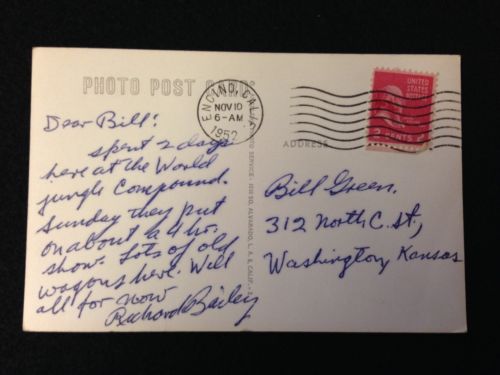 PHOTO POST CARD
ENCINO, CALIF.
NOV 10
6-AM
1952
UNITED
STATES
POSTAGE
2 CENTS 2
ADDRESS
Dear Bill:
spent 2 days
here at the World
jungle Compound.
Sunday they put
on about a 4 hr.
show. Lots of old
wagons here. Well
all for now
Richard Bailey
PHOTO SERVICE - 1610 SO. ALVARADO, L. A. 6, CALIF.
Bill Green.
312 North C. st.,
Washington, Kansas